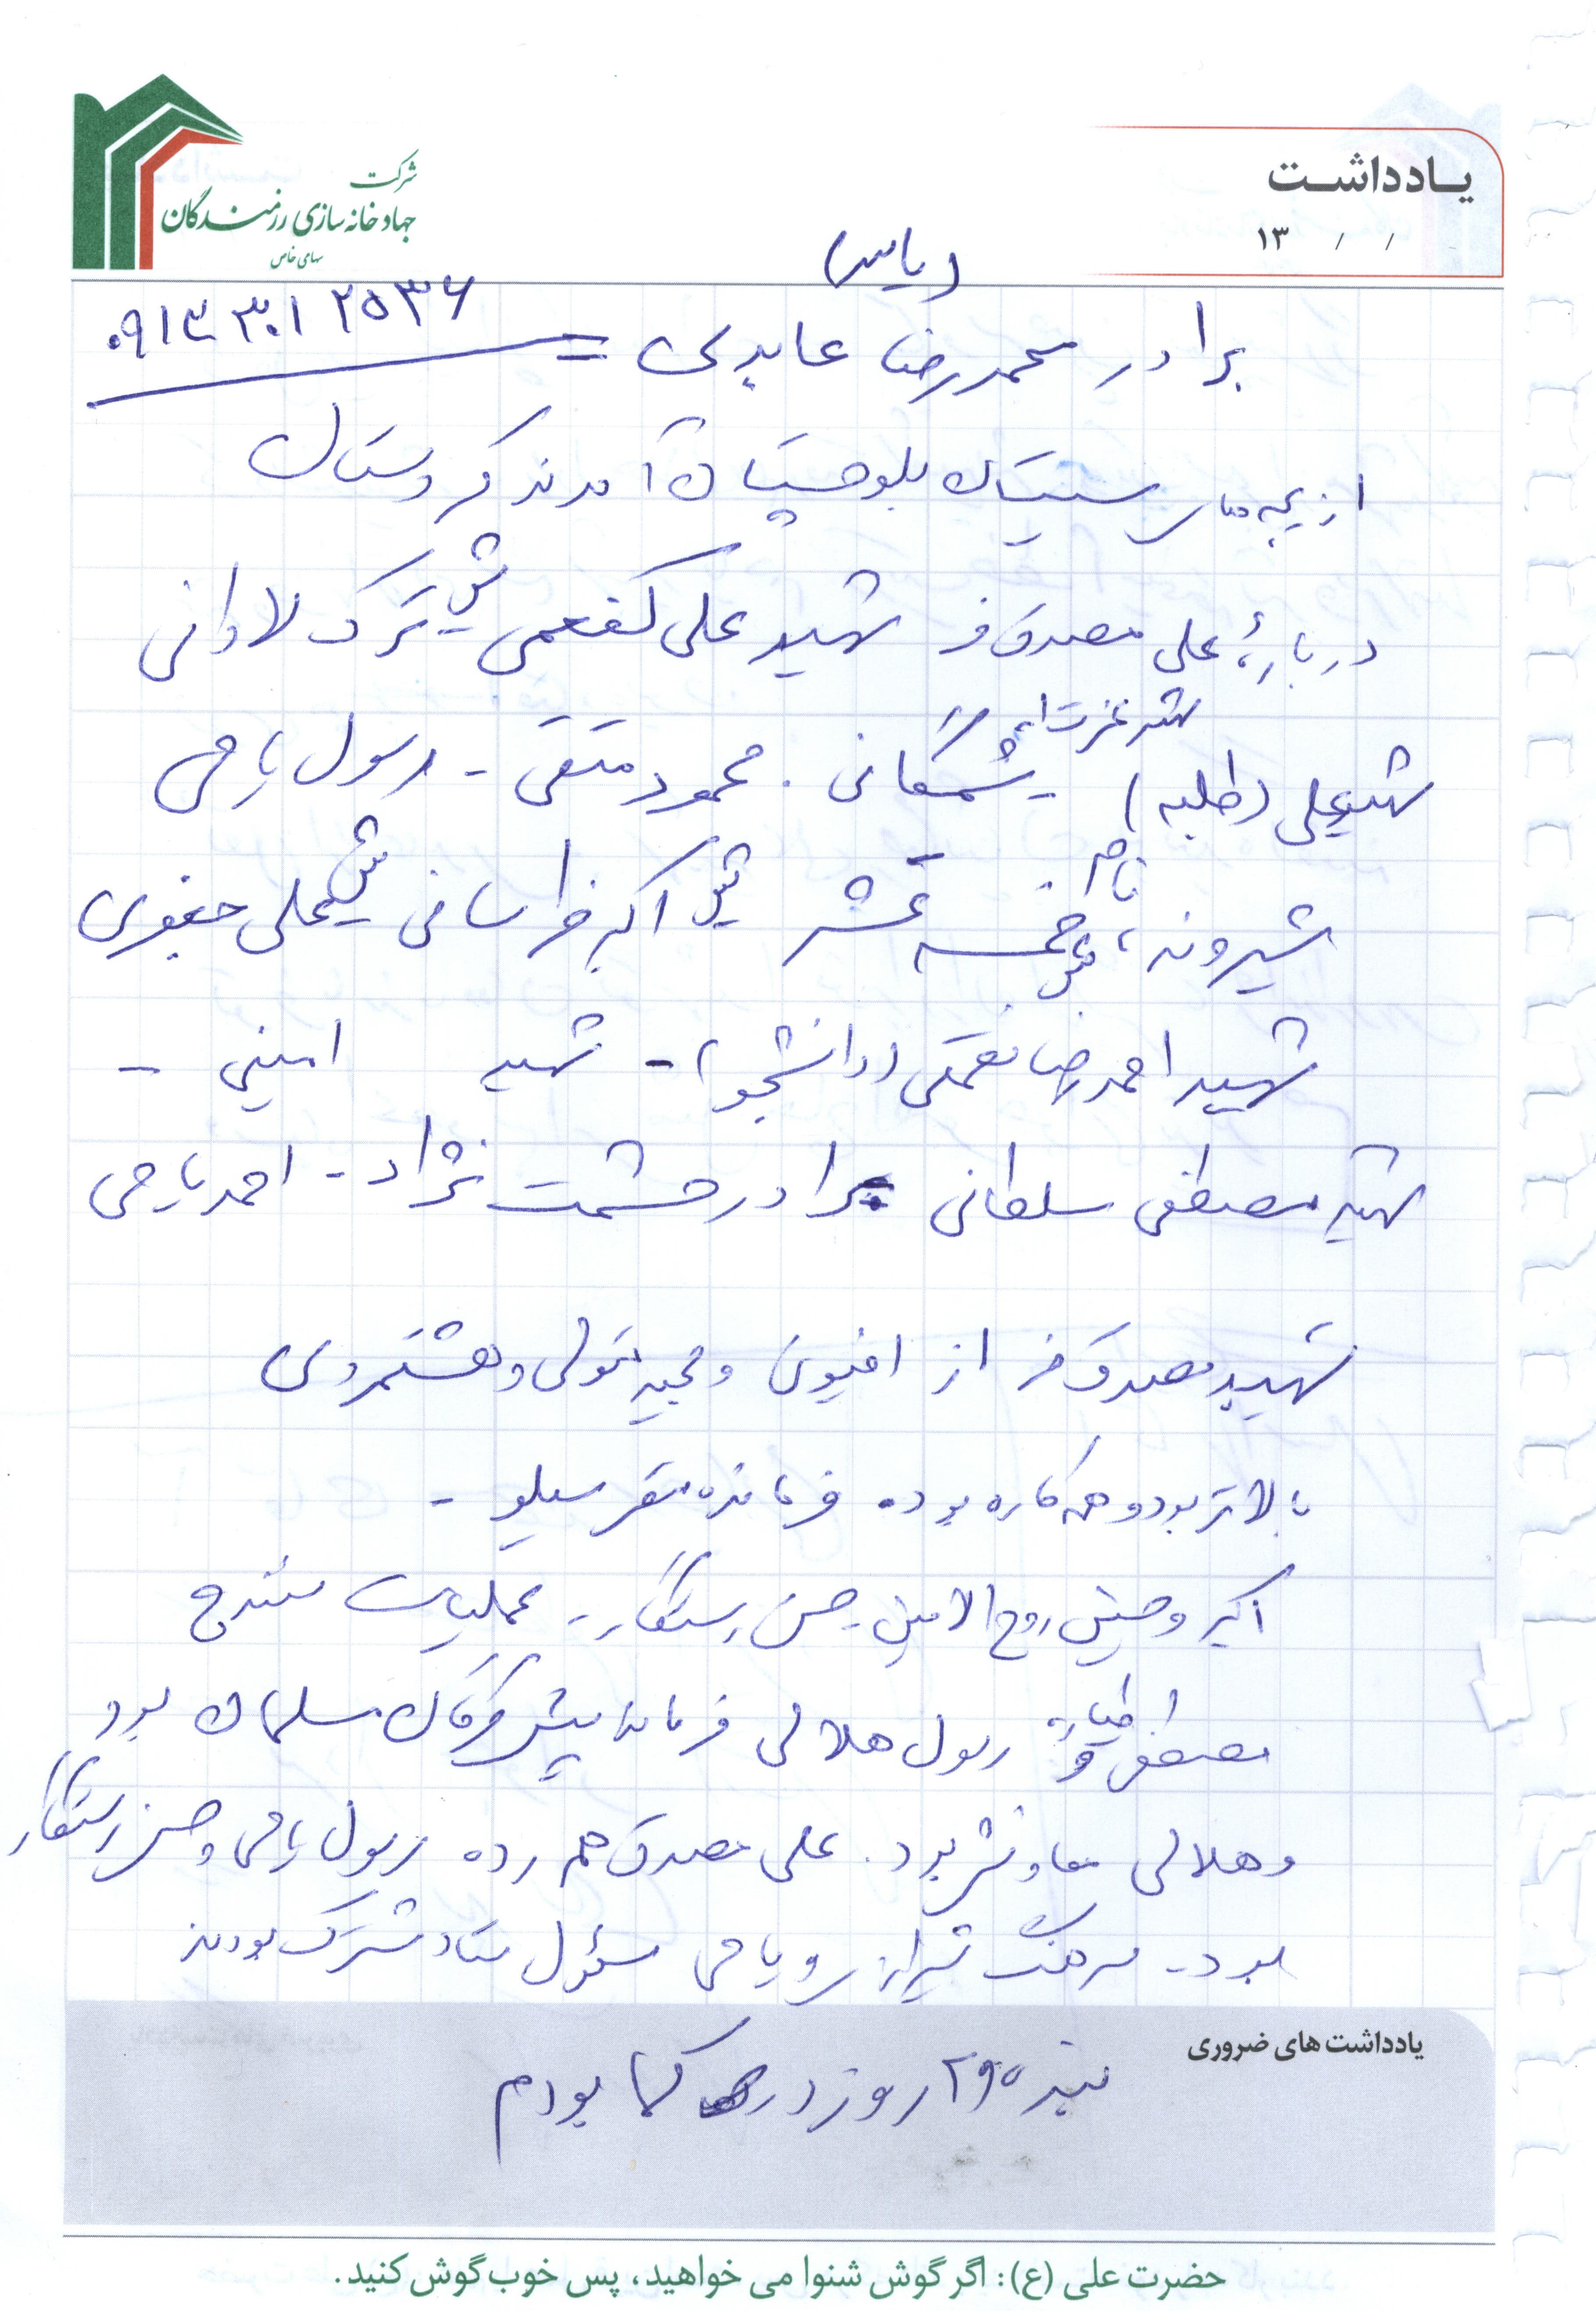 شرکت
جهاد خانه سازی رزمندگان
سهامی خاص
یادداشت
۱۳ / /
(یاسر)
برادر محمدرضا عابدی = ۰۹۱۳ ۳۰۱ ۲۵۳۶
از بچه های سیستان بلوچستان آمدند کردستان
درباره علی مصدق فر شهید علی کفعمی ش ترک لادانی
شهید عزت اله
شهید علی (طلبه) - شمقانی . محمود متقی - رسول یاحی
ناصر
شیرونه، خمسه عشر ش اکبر خراسانی ش علی جعفری
شهید احمدرضا نعمتی (دانشجو) - شهید امینی -
شهید مصطفی سلطانی برادر حشمت نژاد - احمد یاحی
شهید مصدق فر از افیونی و مجید بتولی و هشتمردی
بالاتر بود و همه کاره بوده فرمانده مقر سیلو -
اکبر و حسین روح الامین - حسن رستگار - عملیات سنندج
مصطفی طیاره رسول هلالی فرمانده پیش مرگان مسلمان بود
و هلالی معاونش بود. علی مصدق هم رده رسول یاحی و حسن رستگار
بود - سرهنگ شیرازی و یاحی مسئول ستاد مشترک بودند
یادداشت های ضروری
بنده ۲۹۵ روز در کما بودم
حضرت علی (ع): اگر گوش شنوا می خواهید، پس خوب گوش کنید.